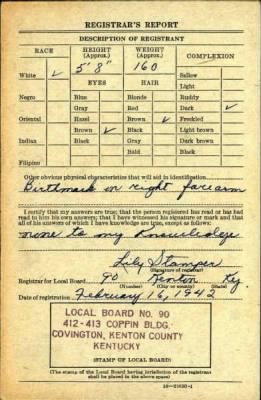 REGISTRAR'S REPORT
DESCRIPTION OF REGISTRANT
RACE
HEIGHT (Approx.)
WEIGHT (Approx.)
COMPLEXION
White ✓
5' 8"
160
Sallow
EYES
HAIR
Light
Negro
Blue
Blonde
Ruddy
Gray
Red
Dark ✓
Oriental
Hazel
Brown ✓
Freckled
Brown ✓
Black
Light brown
Indian
Black
Gray
Dark brown
Bald
Black
Filipino
Other obvious physical characteristics that will aid in identification
Birthmark on right forearm
I certify that my answers are true; that the person registered has read or has had
read to him his own answers; that I have witnessed his signature or mark and that
all of his answers of which I have knowledge are true, except as follows:
none to my knowledge
Lily Stamper
(Signature of registrar)
Registrar for Local Board 90 Kenton Ky.
(Number) (City or county) (State)
Date of registration February 16, 1942
LOCAL BOARD NO. 90
412-413 COPPIN BLDG.
COVINGTON, KENTON COUNTY
KENTUCKY
(STAMP OF LOCAL BOARD)
(The stamp of the Local Board having jurisdiction of the registrant
shall be placed in the above space.)